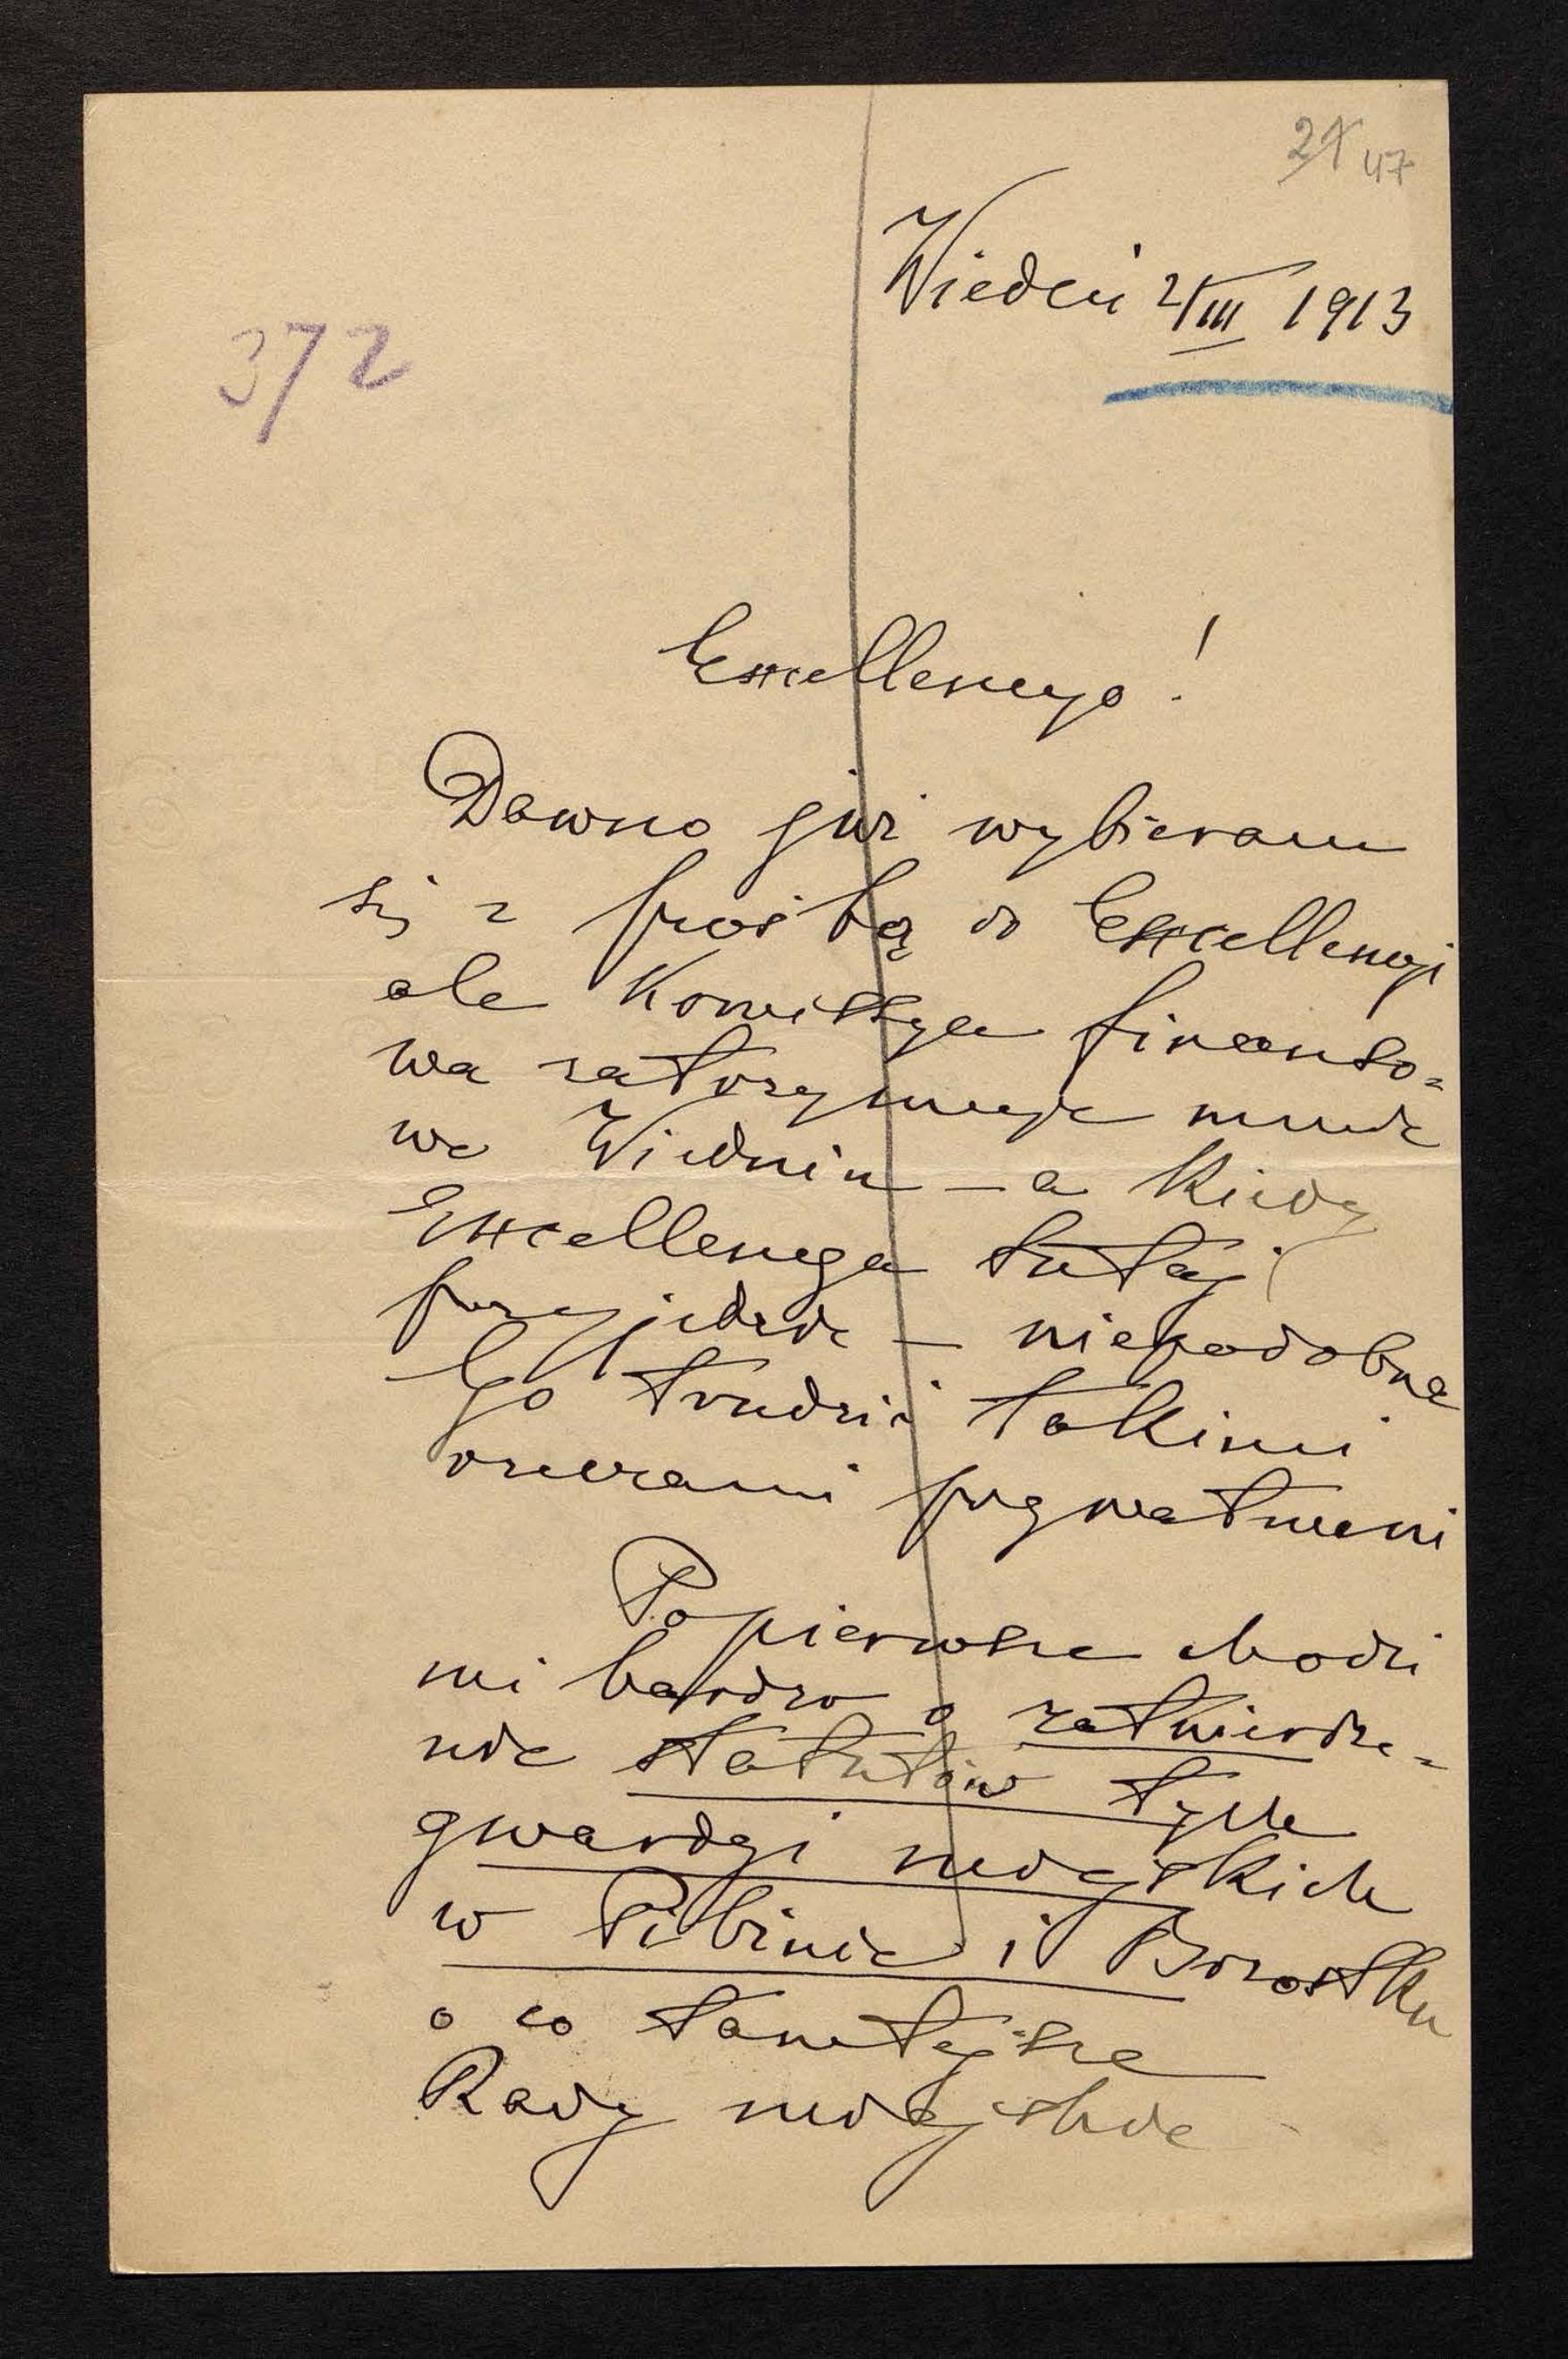 47
Wiedeń 2/III 1913
372
Excellencyo!
Dawno już wybieram
się z prośbą do Excellencyi
ale Komissya finanso=
wa zatrzymuje mnie
we Wiedniu – a kiedy
Excellencya tutaj
przyjedzie – niepodobna
Go trudzić takimi
rzeczami prywatnemi
Po pierwsze chodzi
mi bardzo o zatwierdze=
nie statutów tych
gwardyi miejskich
w Pilźnie i Brzostku
o co tamtejsze
Rady miejskie